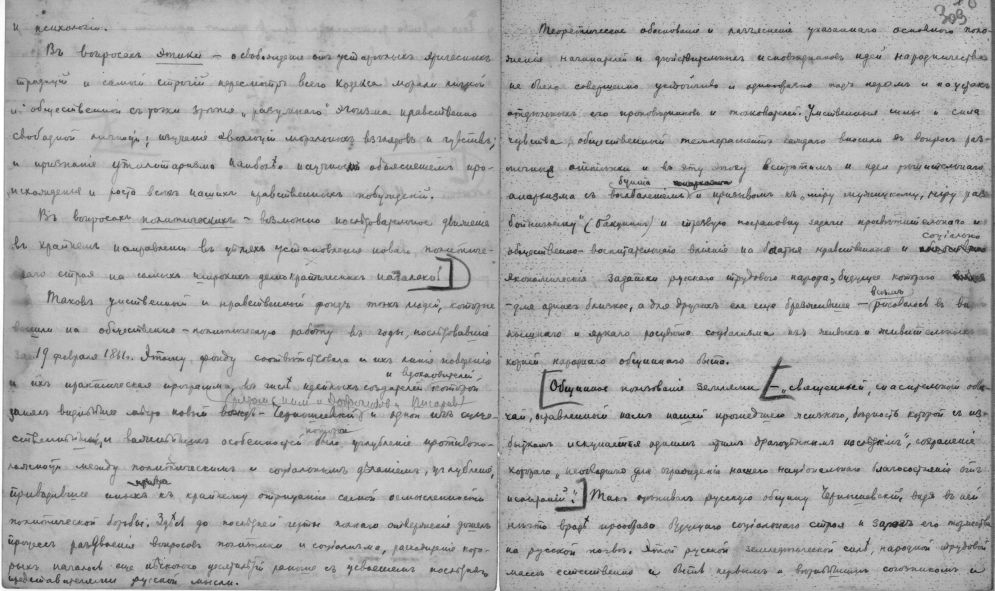 и психологіи.
Въ вопросахъ этики – освобожденіе отъ устарѣлыхъ
традицій и самый строгій пересмотръ всего кодекса морали личной
и общественной съ точки зрѣнія „разумнаго" эгоизма нравственно
свободной личности; изученіе эволюціи моральныхъ взглядовъ и чувствъ;
и признаніе утилитаризма наиболѣе научнымъ объясненіемъ про-
исхожденія и роста всѣхъ нашихъ нравственныхъ побужденій.
Въ вопросахъ политическихъ – возможно послѣдовательное движеніе
въ крайнемъ направленіи въ цѣляхъ установленія новаго политиче-
скаго строя на самыхъ широкихъ демократическихъ началахъ.]
Таковъ умственный и нравственный фондъ тѣхъ людей, которые
вышли на общественно-политическую работу въ годы, послѣдовавшіе
за 19 февраля 1861 г. Этому фонду соотвѣтствовала и ихъ линія поведенія
и вдохновителей
и ихъ практическая программа, въ числѣ идейныхъ создателей которой
(рядомъ съ нимъ и Добролюбовъ и Писаревъ)
занялъ виднѣйшее мѣсто новый вождь – Чернышевскій и одной изъ суще-
ственнѣйшихъ и важнѣйшихъ особенностей которой было углубленіе противопо-
ложности между политическимъ и соціальнымъ дѣланіемъ, углубленіе,
приводившее иныхъ къ крайнему отрицанію самой осмысленности
политической борьбы. Здѣсь до послѣдней черты полнаго отверженія дошелъ
процессъ раздвоенія вопросовъ политики и соціализма, расхожденіе кото-
рыхъ началось еще нѣсколько десятилѣтій раньше съ усвоеніемъ послѣдняго
представителями русской мысли.
309
Теоретическое обоснованіе и разъясненіе указаннаго основного поло-
женія начинателей и дѣйствительныхъ исповѣдниковъ идей народничества
не было совершенно устойчиво и однообразно подъ перомъ и въ устахъ
отдѣльныхъ его проповѣдниковъ и толкователей. Умственныя силы и сила
чувства и общественной темпераментъ каждаго вносили въ вопросъ раз-
личные оттѣнки и въ эту эпоху встрѣтимъ и идеи рѣшительнаго
анархизма съ бунта и призывомъ къ „міру мужицкому, міру раз-
бойничьему" (Бакунинъ) и трезвую постановку задачи просвѣтительнаго и
соціально
общественно-воспитательнаго вліянія на богатые нравственные и
экономическіе задатки русскаго трудового народа, будущее котораго
– для однихъ близкое, а для другихъ еле еще брезжившее – рисовалось въ видѣ
пышнаго и яркаго расцвѣта соціализма изъ живыхъ и живительныхъ
корней народнаго общиннаго быта.
[Общинное пользованіе землями [– „священный, спасительный обы-
чай, оставленный намъ нашей прошедшею жизнью, бѣдность которой съ из-
быткомъ искупается однимъ этимъ драгоцѣннымъ наслѣдіемъ", сохраненіе
котораго „необходимо для огражденія нашего національнаго благосостоянія отъ
испытаній".] Такъ оцѣнивалъ русскую общину Чернышевскій, видя въ ней
нѣчто вродѣ прообраза будущаго соціальнаго строя и залогъ его торжества
на русской почвѣ. Этой русской земледѣльческой силѣ, народной трудовой
массѣ естественно и быть первымъ и важнѣйшимъ союзникомъ и